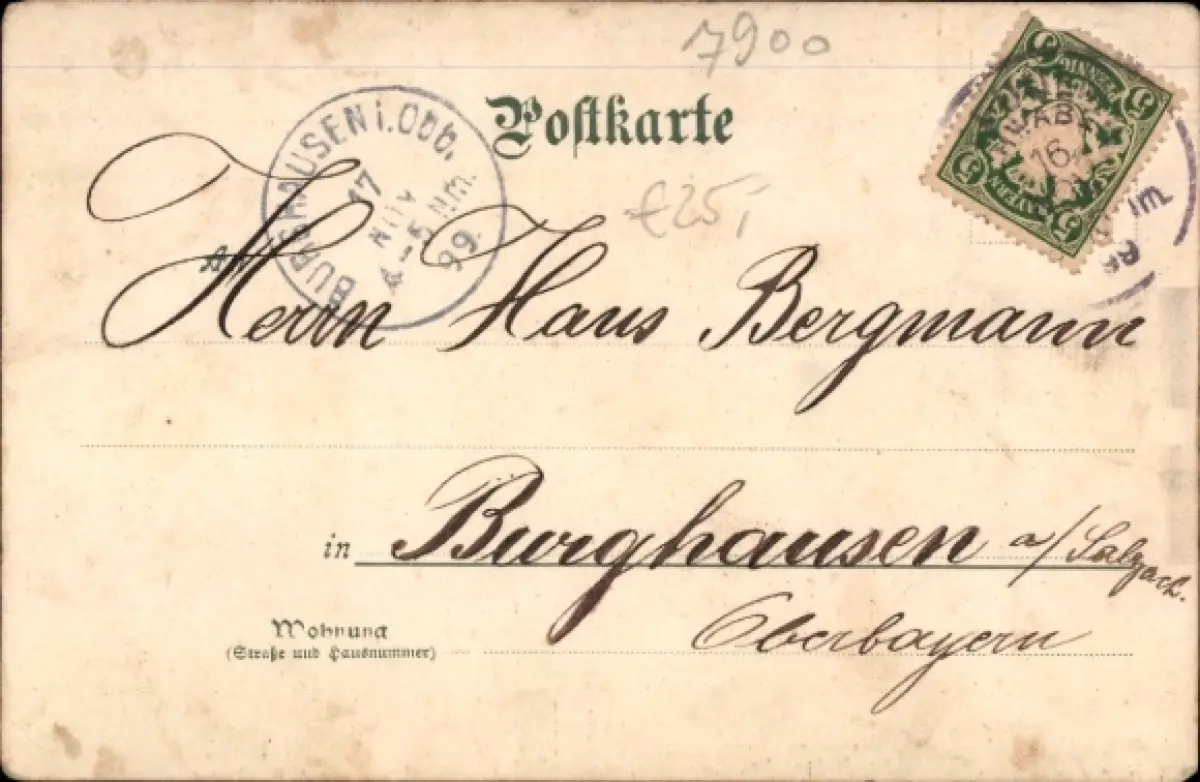 7900
Postkarte
€25,-
BURGHAUSEN i. Obb.
17
NOV
4-5 NM.
99.
An
Herrn Hans Bergmann
in Burghausen a/Salzach.
Oberbayern
Wohnung
(Straße und Hausnummer)
5
5
5
5
BAYERN
16